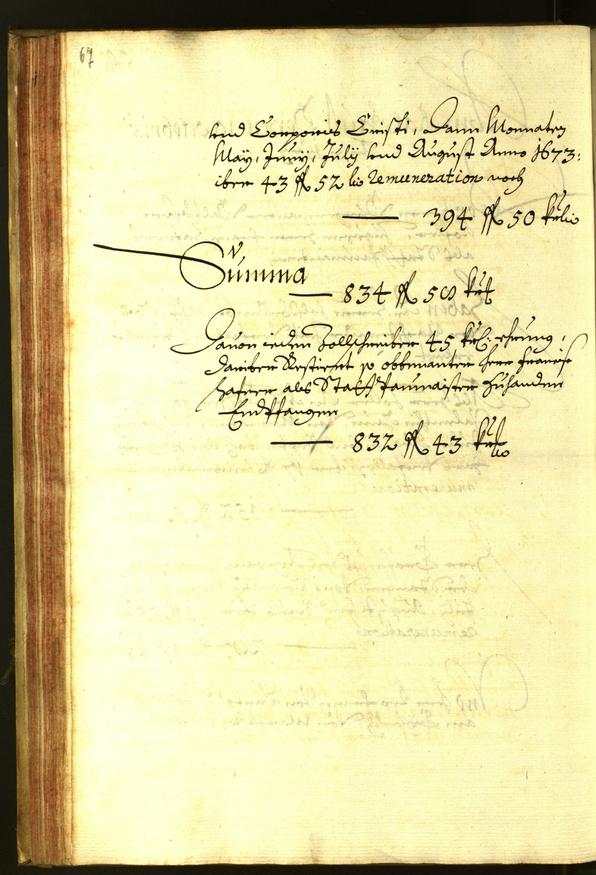 67
und Corporis Cristi, dann Monnaten
May, Juny, July und August Anno 1673:
iber 43 fl 52 kr remuneration noch
394 fl 50 kr
Summa
834 fl 50 kr
Davon ieden Zollschreiber 45 kr: ehrung,
dariber Restiert so obbemanter herr Franz
hafner als Statt Paumaister zuhanden
Endtfangen
832 fl 43 kr